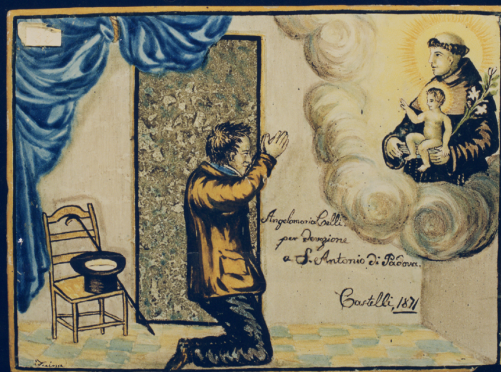 Angelomaria Celli
per devozione
a S. Antonio di Padova.
Castelli, 1871